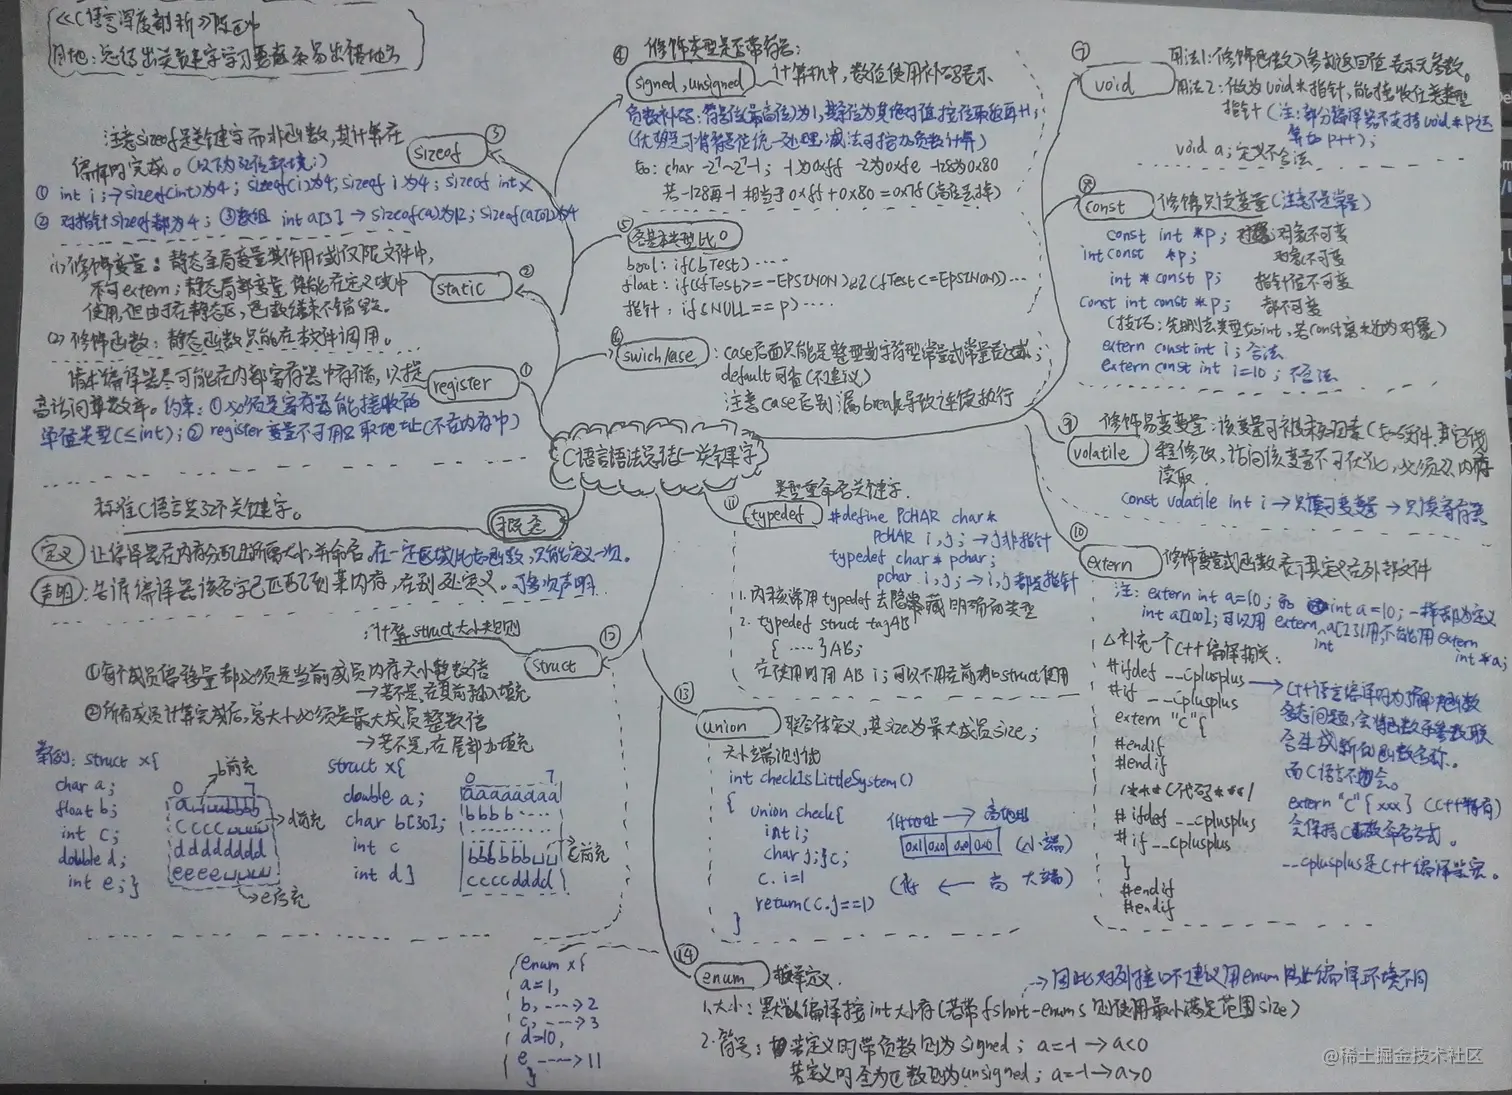 《C语言深度剖析》陈正冲
目地：总结出关键字学习要点和易出错地方
注意sizeof是关键字而非函数，其计算在
编译时完成。(以下为32位环境：)
③ sizeof
① int i;→sizeof(int)为4; sizeof(i)为4; sizeof i为4; sizeof int ×
② 对指针sizeof都为4; ③数组 int a[3] → sizeof(a)为12; sizeof(a[0])为4
(1) 修饰变量：静态全局变量其作用域仅限文件中，
不可extern；静态局部变量只能在定义域中
使用，但由于在静态区，函数结束不销毁。
② static
(2) 修饰函数：静态函数只能在本文件调用。
请求编译器尽可能在内部寄存器中存储，以提
高访问等效率。约束：①必须是寄存器能接收的
单值类型(≤int)；② register变量不可用&取地址(不在内存中)
① register
C语言语法总结—关键字
标准C语言共32个关键字。
概念
定义 让编译器在内存分配出所需大小并命名，在一定区域比如函数，只能定义一次。
声明：告诉编译器该名字已匹配到某内存，在别处定义。可多次声明
④ 修饰类型是否带符号：
signed, unsigned
计算机中，数值使用补码表示
负数补码：符号位(最高位)为1，其余位为其绝对值按位取反再+1；
(优势：可将符号位统一处理；减法可按加负数计算)
如：char -2⁷~2⁷-1； -1为0xff -2为0xfe -128为0x80
若-128再-1 相当于0xff + 0x80 = 0x7f (高位丢掉)
⑤ 各基本类型比0
bool: if(bTest) ····
float: if((fTest>= -EPSINON) && (fTest<=EPSINON))···
指针: if(NULL == p) ····
⑥ swich/case : case后面只能是整型或字符型常量或常量表达式；
default可省(不建议)
注意case后别漏break导致连续执行
⑦ void
用法1：修饰函数入参或返回值 表示无参数。
用法2：做为void*指针，能接收任意类型
指针(注：部分编译器不支持void *p运
算如 p++)；
void a; 定义不合法
⑧ const 修饰只读变量(注意不是常量)
const int *p; 对象不可变
int const *p; 对象不可变
int * const p; 指针值不可变
const int const *p; 都不可变
(技巧：先删去类型如int，看const离*近为对象)
extern const int i; 合法
extern const int i=10; 不合法
⑨ volatile 修饰易变变量：该变量可被未知因素(如硬件、其它线
程修改，访问该变量不可优化，必须从内存
读取。
const volatile int i → 只读可变变量 → 只读寄存器
⑩ extern 修饰变量或函数 表示其定义在外部文件
注：extern int a=10; 和 int a=10; 一样都为定义
int a[100]; 可以用 extern int a[23]用，不能用extern int *a;
△补充一个C++编译相关：
#ifdef __cplusplus
#if __cplusplus
extern "C" {
#endif
#endif
/*** C代码 ***/
#ifdef __cplusplus
#if __cplusplus
}
#endif
#endif
C++语言编译时为了解决函数
多态问题，会将函数名和参数联
合生成新的函数名称。
而C语言不会。
extern "C" { xxx } (C++特有)
会保持C函数命名方式。
__cplusplus是C++编译器宏。
⑪ 类型重命名关键字.
typedef
#define PCHAR char*
PCHAR i, j; → j非指针
typedef char* pchar;
pchar i, j; → i, j都是指针
1. 内核常用typedef去隐藏明确的类型
2. typedef struct tagAB
{ ···· }AB;
在使用时用 AB i; 可以不用在前面加struct使用
⑫ struct
计算struct大小规则
①每个成员偏移量都必须是当前成员内存大小整数倍
→若不是，在其前插入填充
②所有成员计算完成后，总大小必须是最大成员整数倍
→若不是，在尾部加填充
举例：struct x{
char a;
float b;
int c;
double d;
int e;}
0 7
b前充
bbbb
cccc
dddddddd
eeee
d前充
e后充
struct x{
double a;
char b[30];
int c
int d}
0 7
aaaaaaaa
bbbb ····
bbbbbb
c前充
ccccdddd
⑬ union 联合体定义，其size为最大成员size；
大小端测试
int checkIsLittleSystem()
{
union check{
int i;
char j;}c;
c.i=1
return(c.j==1)
}
低地址 → 高地址
0x1 0x0 0x0 0x0 (小端)
(低 ← 高 大端)
⑭ enum 枚举定义.
→因此对外接口不建议用enum防止编译环境不同
1.大小：默认编译按int大小存(若带fshort-enums 则使用最小满足范围size)
2.符号：若定义时带负数则为signed; a=-1→a<0
若定义时全为正数则为unsigned; a=-1→a>0
enum x{
a=1,
b, ---→2
c, ---→3
d=10,
e ---→11
}
@稀土掘金技术社区